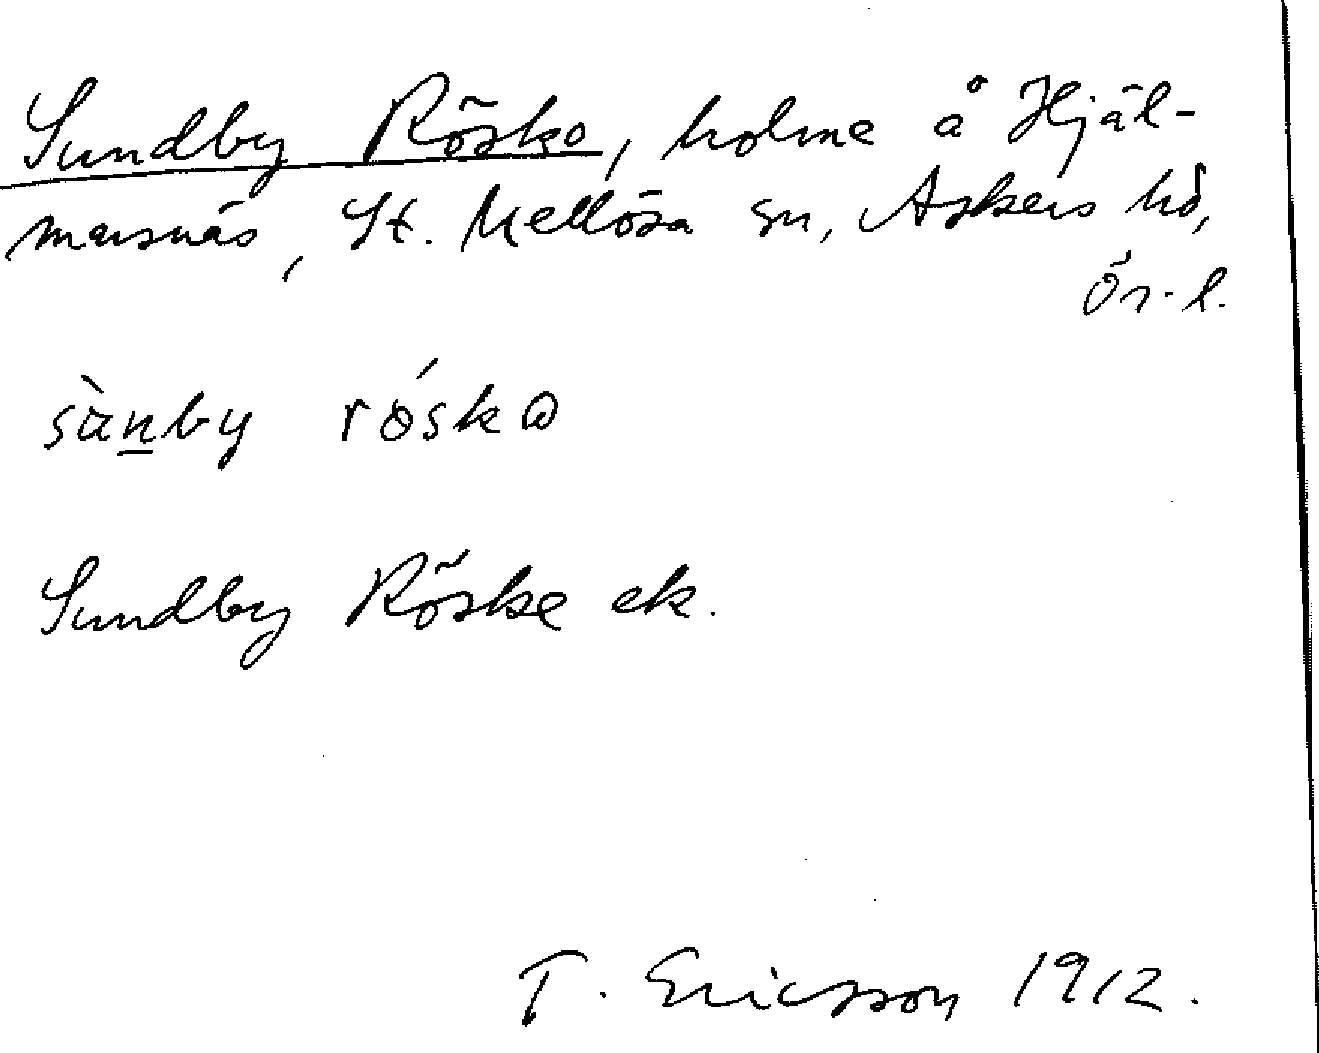 Sundby Rösko, holme å Hjäl-
marsnäs, St. Mellösa sn, Askers hd,
Ör. l.
sùn̲by röska
Sundby Röske ek.
T. Ericsson 1912.